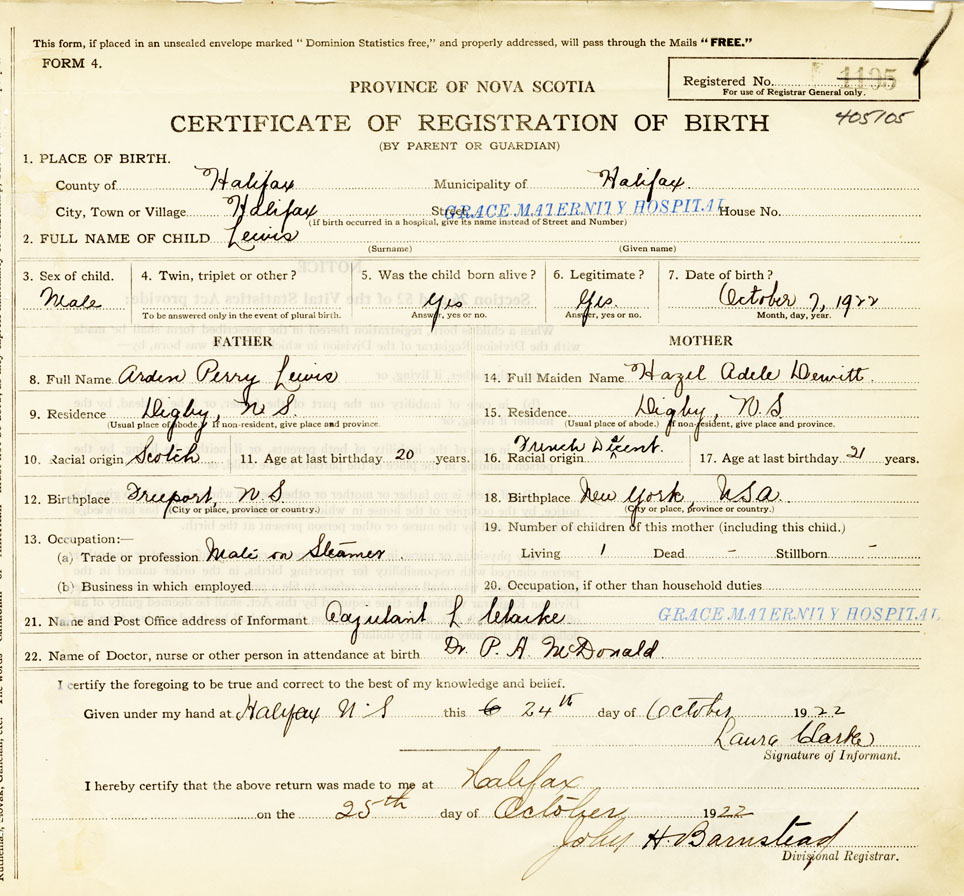 This form, if placed in an unsealed envelope marked "Dominion Statistics free," and properly addressed, will pass through the Mails "FREE."
FORM 4.
Registered No. 1195
For use of Registrar General only.
PROVINCE OF NOVA SCOTIA
405105
CERTIFICATE OF REGISTRATION OF BIRTH
(BY PARENT OR GUARDIAN)
1. PLACE OF BIRTH.
County of Halifax Municipality of Halifax.
City, Town or Village Halifax Street GRACE MATERNITY HOSPITAL House No.
(If birth occurred in a hospital, give its name instead of Street and Number)
2. FULL NAME OF CHILD Lewis
(Surname) (Given name)
3. Sex of child. 4. Twin, triplet or other? 5. Was the child born alive? 6. Legitimate? 7. Date of birth?
Male Yes Yes. October 7, 1922
To be answered only in the event of plural birth. Answer, yes or no. Answer, yes or no. Month, day, year.
FATHER MOTHER
8. Full Name Arden Perry Lewis 14. Full Maiden Name Hazel Adele Dewitt.
9. Residence Digby, N S. 15. Residence Digby, N.S.
(Usual place of abode. If non-resident, give place and province. (Usual place of abode.) If non-resident, give place and province.
10. Racial origin Scotch 11. Age at last birthday 20 years. 16. Racial origin French Decent. 17. Age at last birthday 21 years.
12. Birthplace Freeport, N S 18. Birthplace New York, USA.
(City or place, province or country.) (City or place, province or country.)
13. Occupation:— 19. Number of children of this mother (including this child.)
(a) Trade or profession Mate on Steamer Living 1 Dead - Stillborn -
(b) Business in which employed 20. Occupation, if other than household duties
21. Name and Post Office address of Informant Adjutant L Clarke. GRACE MATERNITY HOSPITAL
22. Name of Doctor, nurse or other person in attendance at birth Dr. P. A. McDonald.
I certify the foregoing to be true and correct to the best of my knowledge and belief.
Given under my hand at Halifax N S this 24th day of October 1922
Laura Clarke
Signature of Informant.
I hereby certify that the above return was made to me at Halifax
on the 25th day of October 1922
John H. Barnstead
Divisional Registrar.